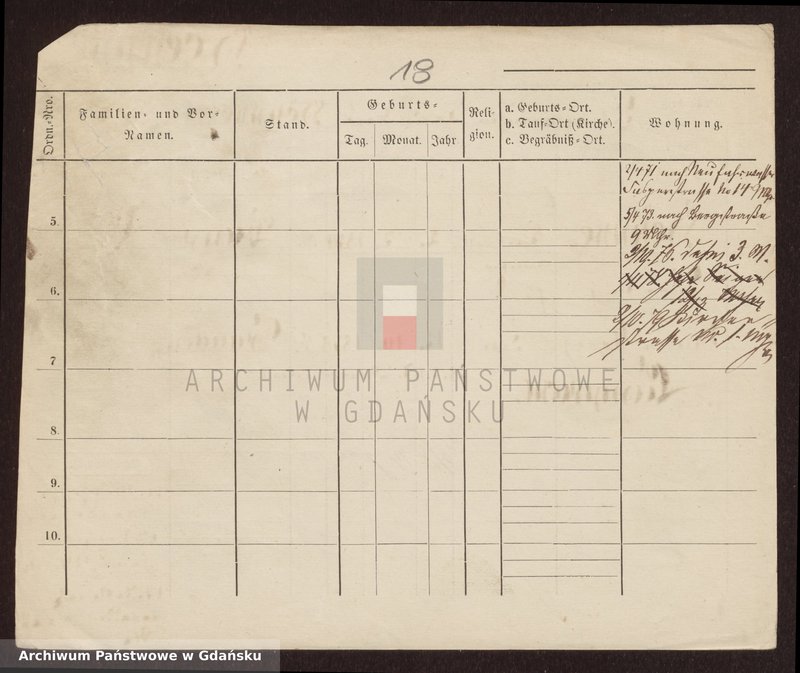 18
Ordn.-Nro.
Familien- und Vor-
Namen.
Stand.
Geburts-
Tag.
Monat.
Jahr
Reli-
gion.
a. Geburts-Ort.
b. Tauf-Ort (Kirche).
c. Begräbniß-Ort.
Wohnung.
2/4 71 nach Neufahrwasser
No 14
5/4 73. nach Bergstraße
9
3.
2/10. 79
straße No. 1.
5.
6.
7
8.
9.
10.
ARCHIWUM PAŃSTWOWE
W GDAŃSKU
Archiwum Państwowe w Gdańsku